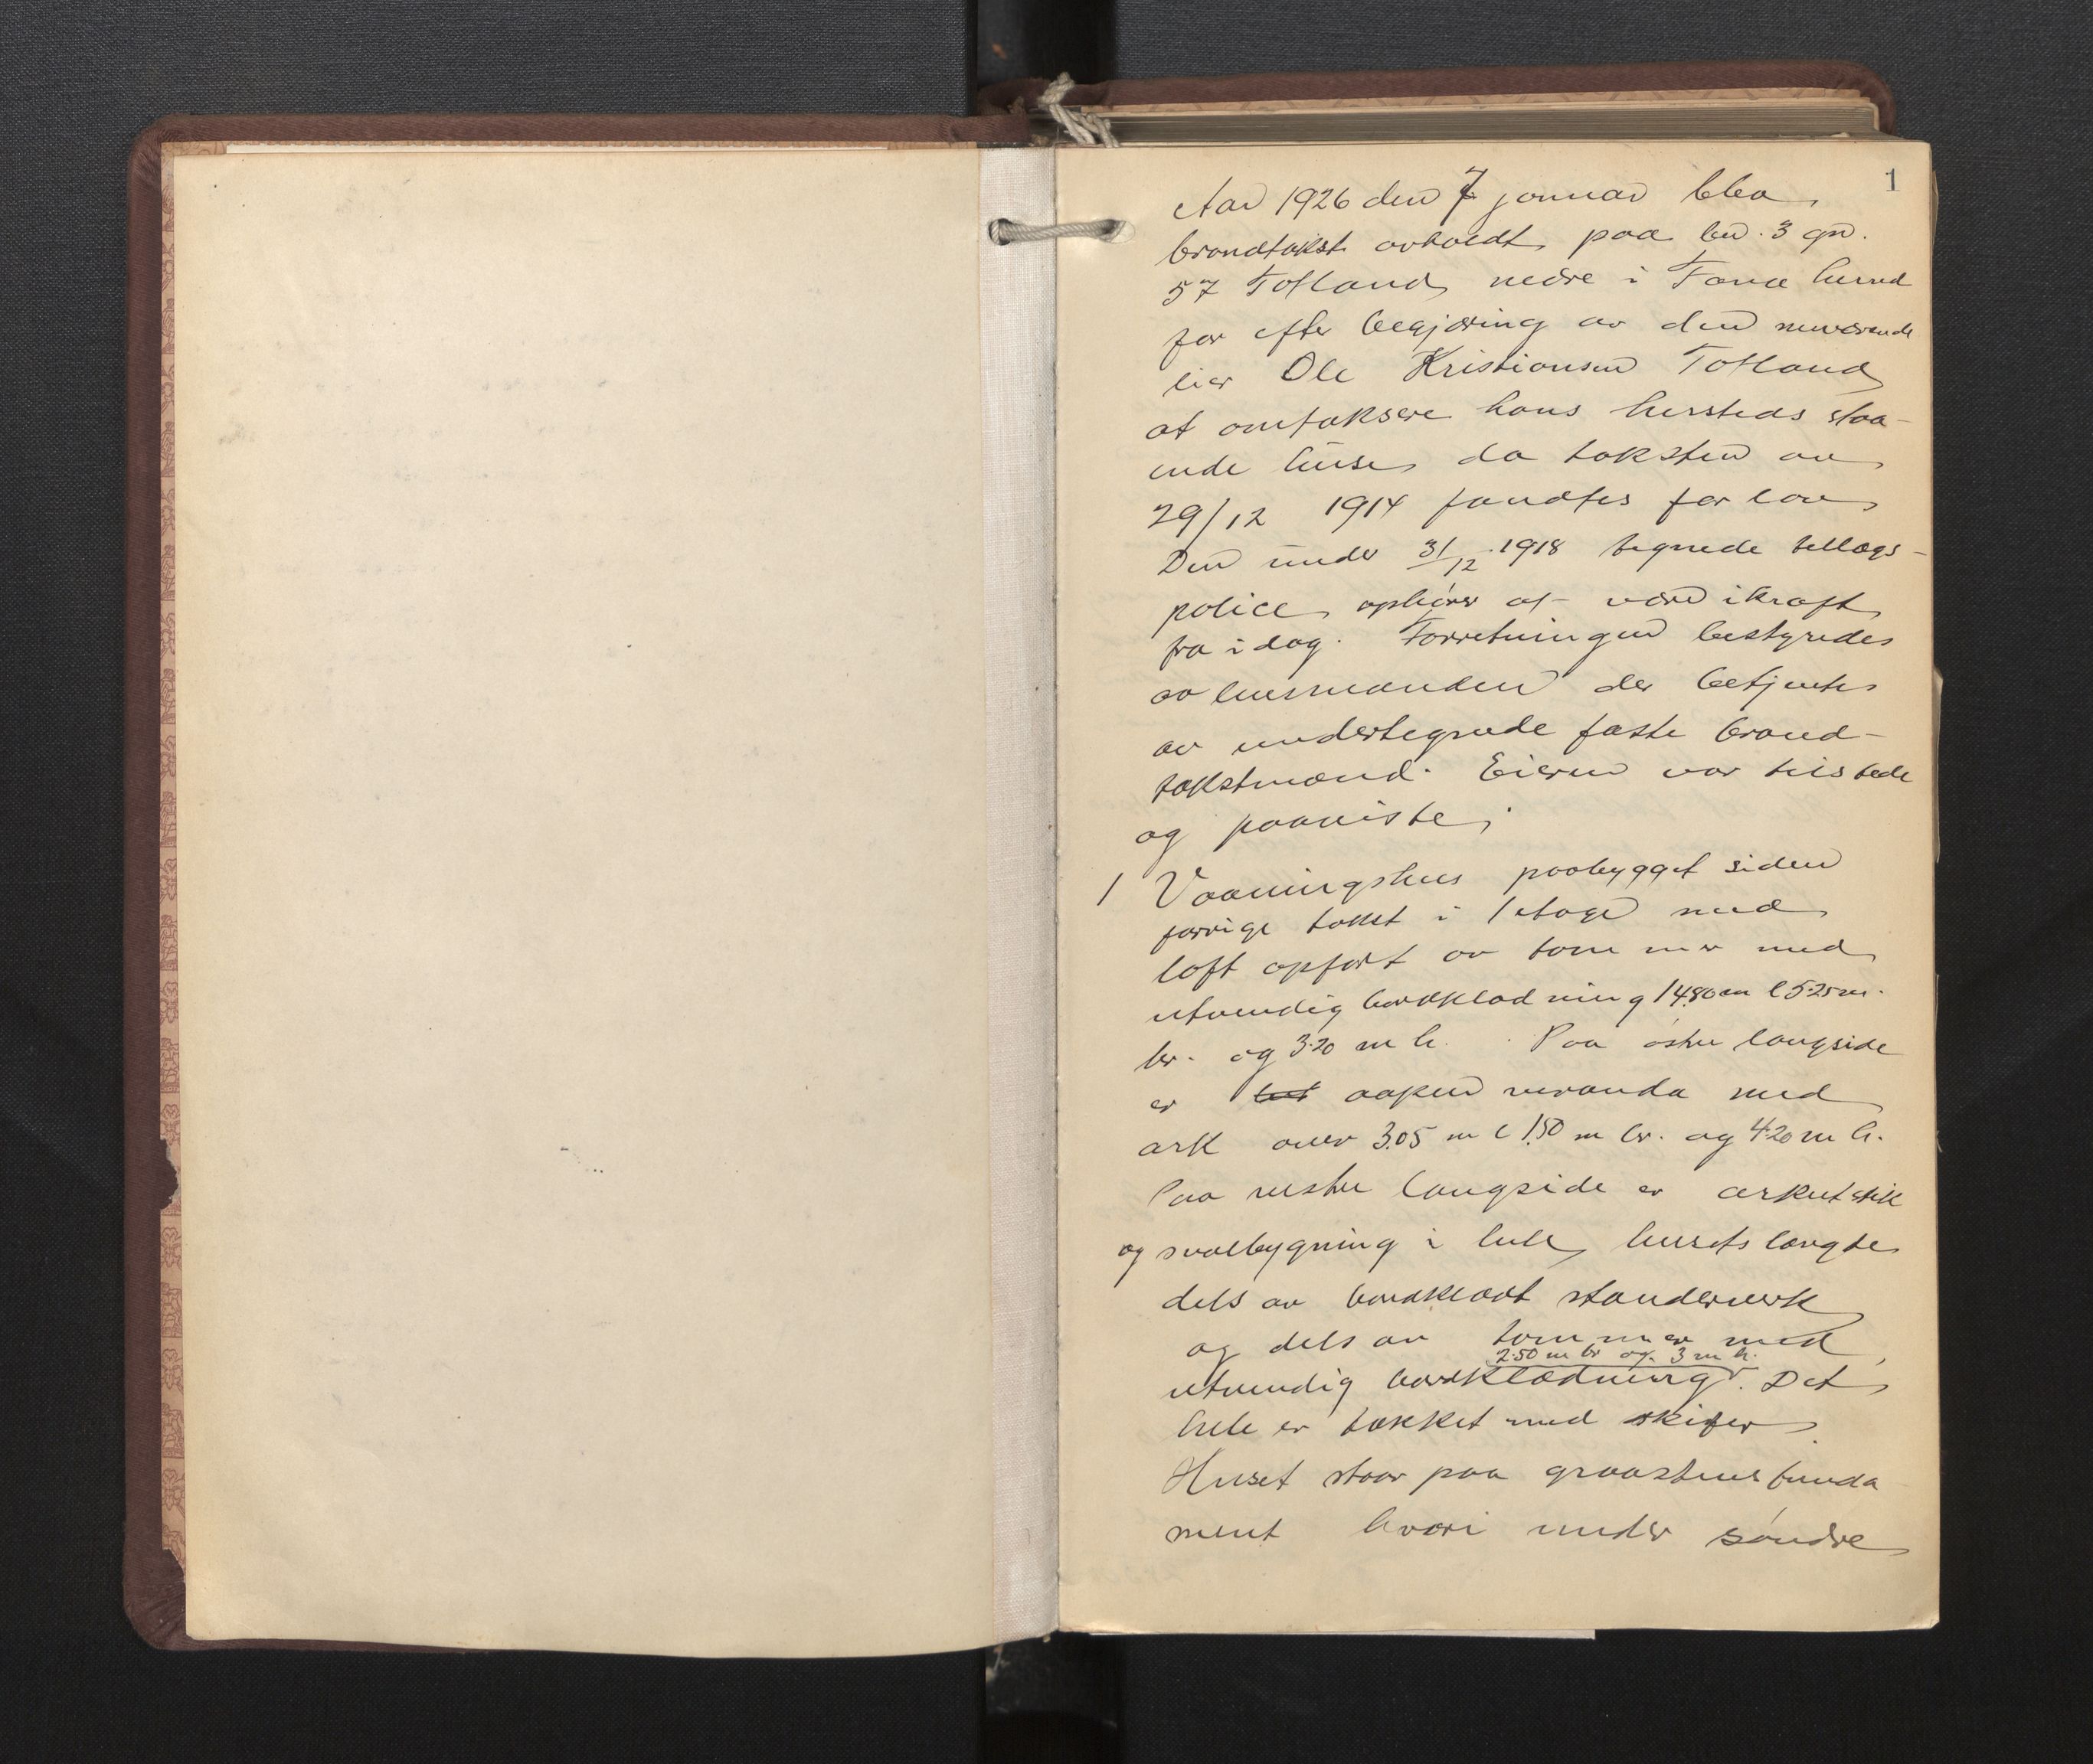 1
Aar 1926 den 7 januar blev
brandtakst avholdt paa bn. 3 gn.
57 Totland nedre i Fana herred
for efter begjæring av den nuværende
eier Ole Kristiansen Totland
at omtaksere hans hersteds staa-
ende huse da taksten av
29/12 1914 fandtes for lav
Den under 31/12 1918 tegnede tillægs-
police ophører at være ikraft
fra idag. Forretningen bestyredes
av lensmanden der betjentes
av undertegnede faste brand-
takstmænd. Eieren var tilstede
og paaviste;
1 Vaaningshus paabygget siden
forrige takst i 1 etage med
loft opført av tømmer med
utvendig bordklædning 14.80 m l 5.25 m.
br. og 3.20 m h. Paa østre langside
er aapen veranda med
ark over 3.05 m l 1.50 m br. og 4.20 m h.
Paa vestre langside er arkutstik
og svalbygning i hele husets længde
dels av bordklædt standerverk
og dels av tømmer med
2.50 m br og 3 m h.
utvendig bordklædning. Det
hele er tækket med skifer
Huset staar paa graastensfunda
ment hvori under søndre